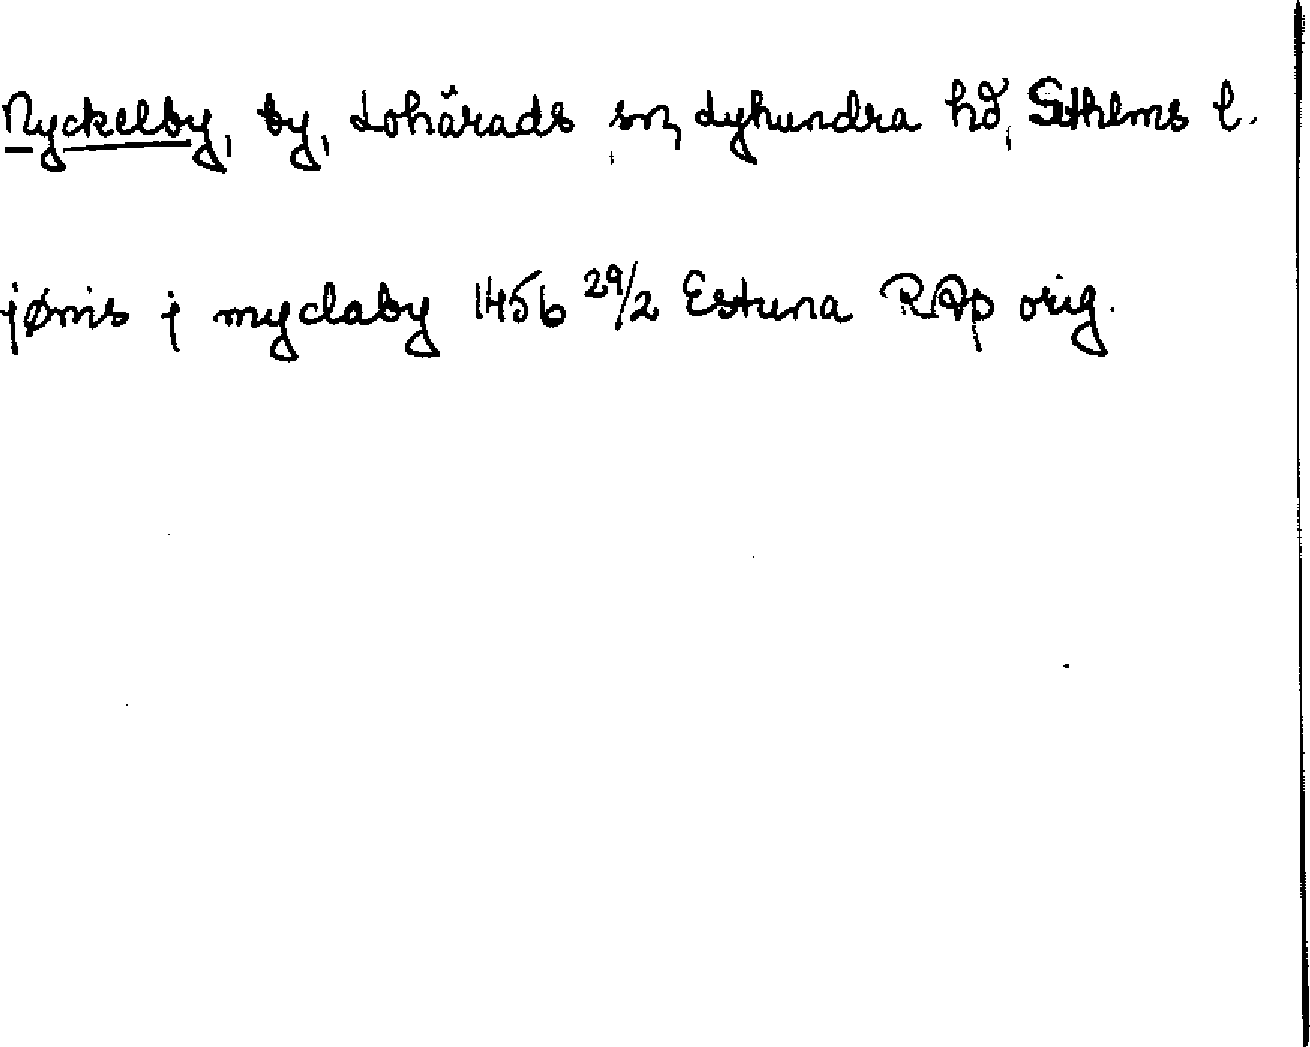 Nyckelby, by, Lohärads sn, Lyhundra hd, Sthlms l.
jønis j myclaby 1456 29/2 Estuna RAp orig.